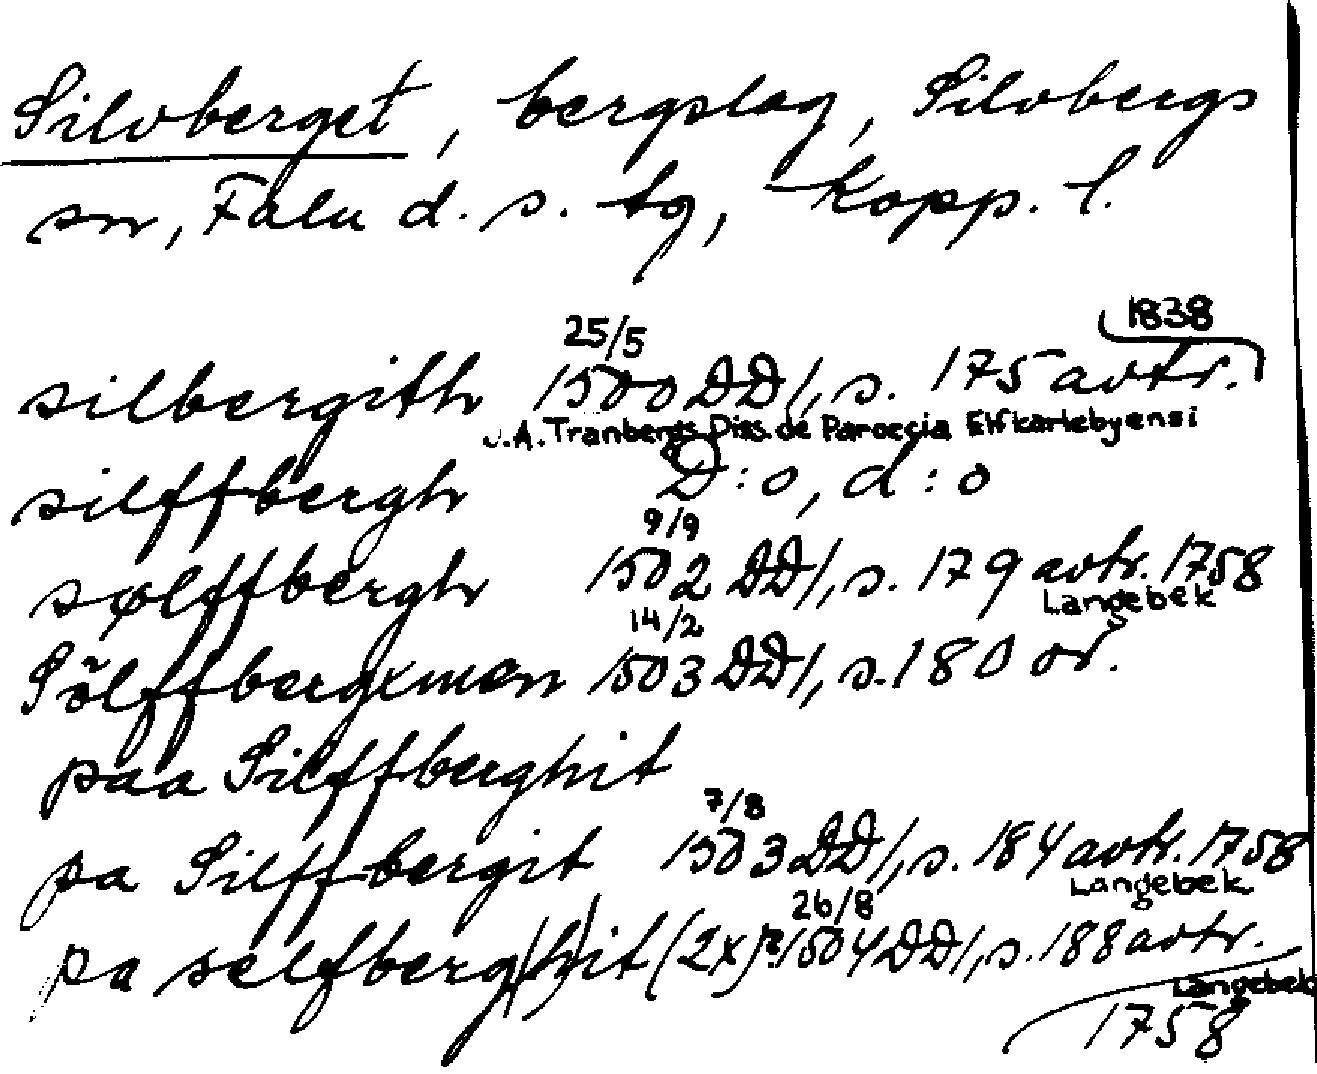 Silvberget, bergslag, Silvbergs
sn, Falu d. s. tg, Kopp. l.
1838
25/5
silbergith 1500 DD1, s. 175 avtr.
J.A. Tranbergs Diss. de Paroecia Elfkarlebyensi
silffbergh D:o, d:o
9/9
sølffbergh 1502 DD1, s. 179 avtr. 1758
Langebek
14/2
Sölffbergxmen 1503 DD1, s. 180 or.
paa Silffberghit
7/8
pa Silffbergit 1503 DD1, s. 184 avtr. 1758
Langebek
26/8
pa selfberg(h)it (2x) 1504 DD1, s. 188 avtr.
Langebek
1758